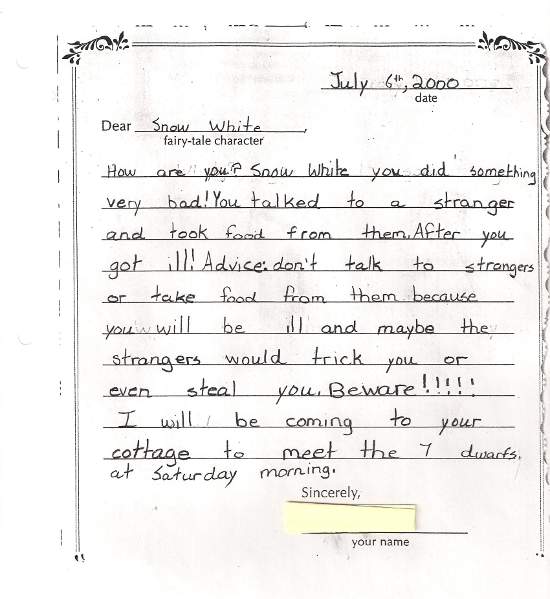 July 6th, 2000
date
Dear Snow White,
fairy-tale character
How are you? Snow White you did something
very bad! You talked to a stranger
and took food from them. After you
got ill! Advice: don't talk to strangers
or take food from them because
you will be ill and maybe the
strangers would trick you or
even steal you. Beware!!!!!
I will be coming to your
cottage to meet the 7 dwarfs.
at Saturday morning.
Sincerely,
your name